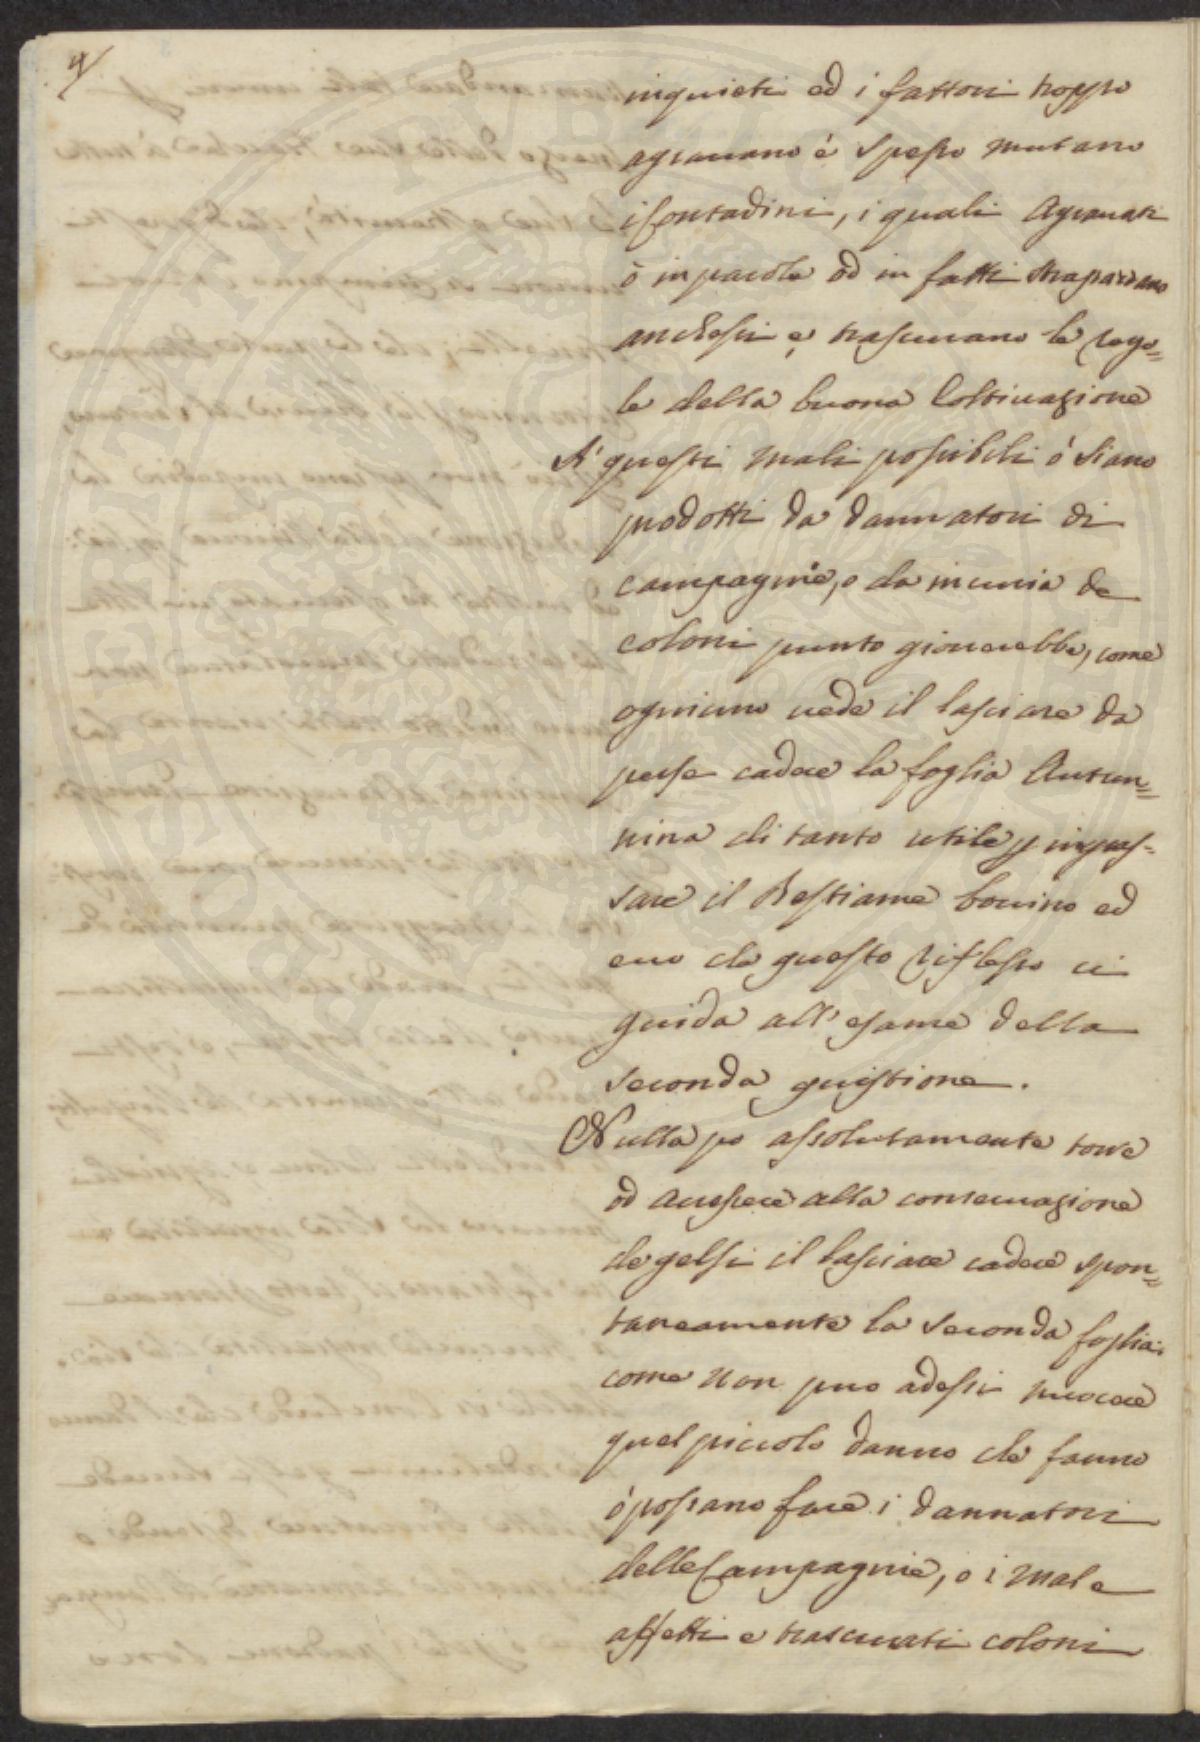 4/
inquieti ed i fattori troppo
agravano è spesso mutano
i Contadini, i quali Agravati
ò in parole od in fatti strapazzano
anchessi e trascurano le rego=
le della buona Coltivazione
A' questi mali possibili ò siano
prodotti da dannatori di
campagnie, o da incuria de
coloni punto gioverebbe, come
ogniuno vede il lasciare da
perse cadere la foglia Autun=
nina di tanto utile p ingras=
sare il Bestiame bovino ed
ecco che questo riflesso ci
guida all'esame della
seconda quistione.
Nulla po assolutamente torre
od acresere alla conservazione
de gelsi il lasciare cadere spon=
taneamente la seconda foglia:
come non puo adessi nuocere
quel piccolo danno che fanno
ò possano fare i dannatori
delle Campagnie, o i male
affetti e trascurati coloni